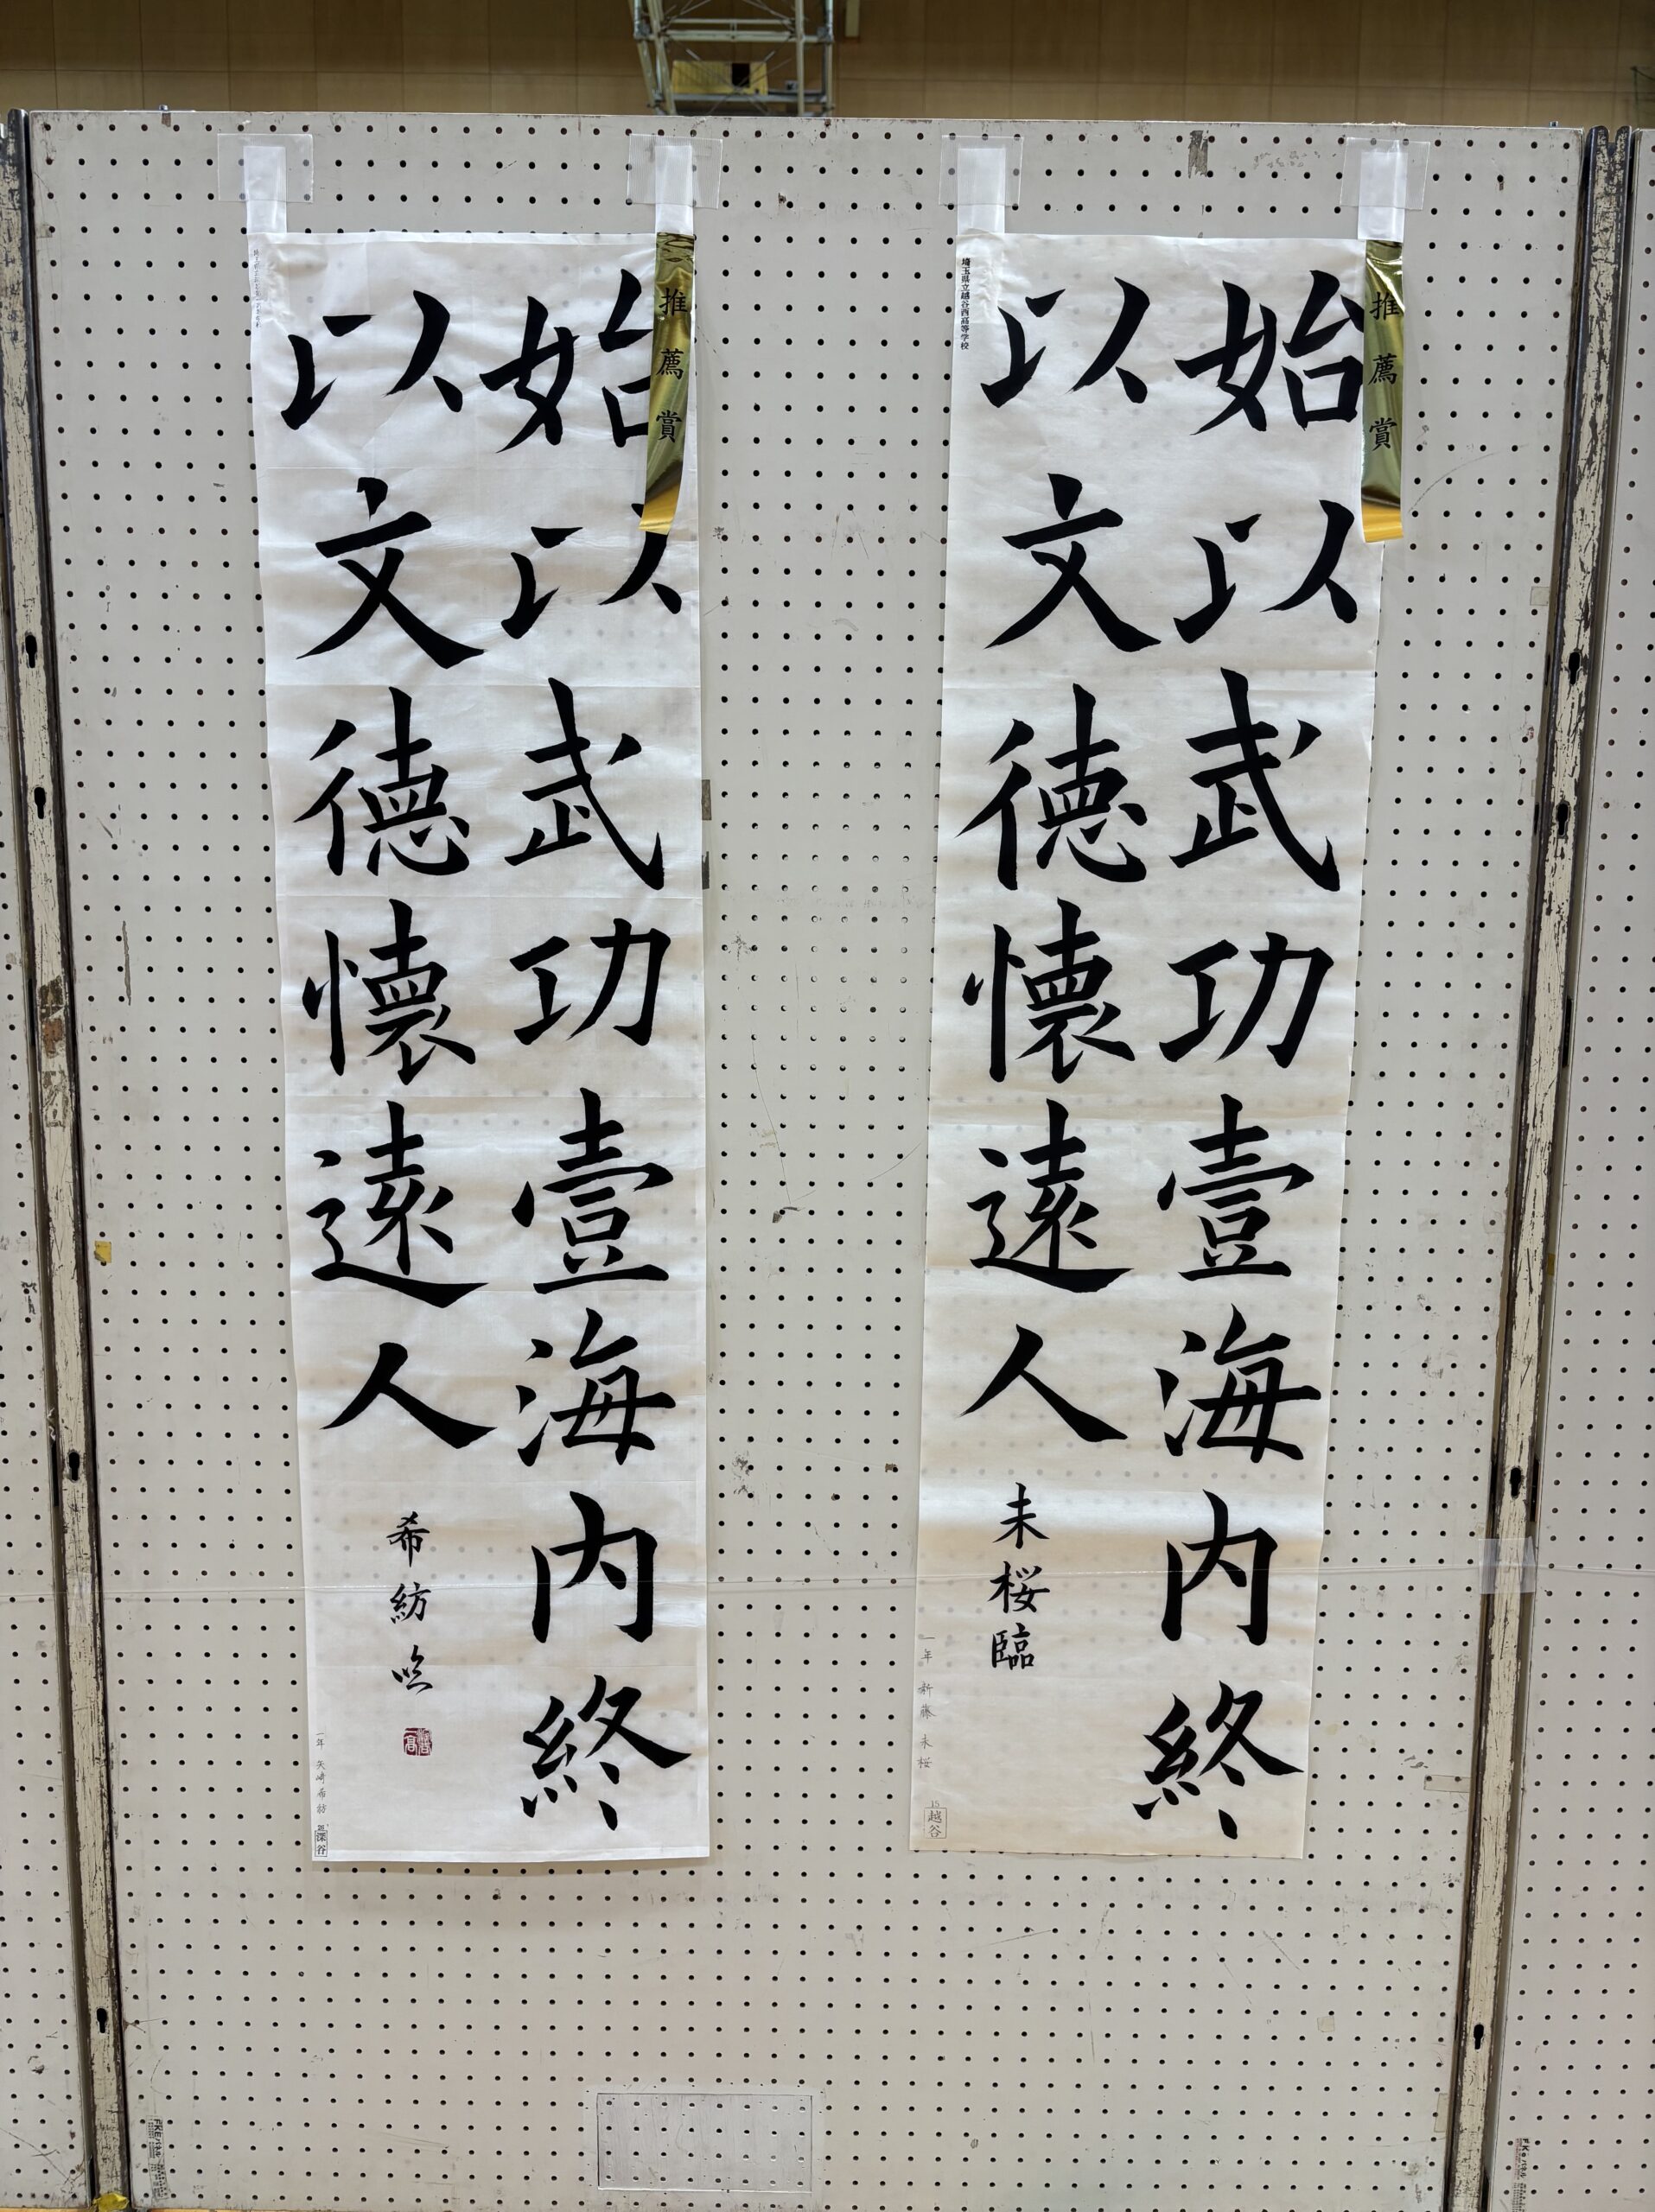 推薦賞
始以武功壹海内終
以文德懷遠人
未桜臨
埼玉県立越谷西高等学校
一年 新藤未桜
15
越谷
推薦賞
始以武功壹海内終
以文德懷遠人
希紡
一年 矢崎希紡
深谷